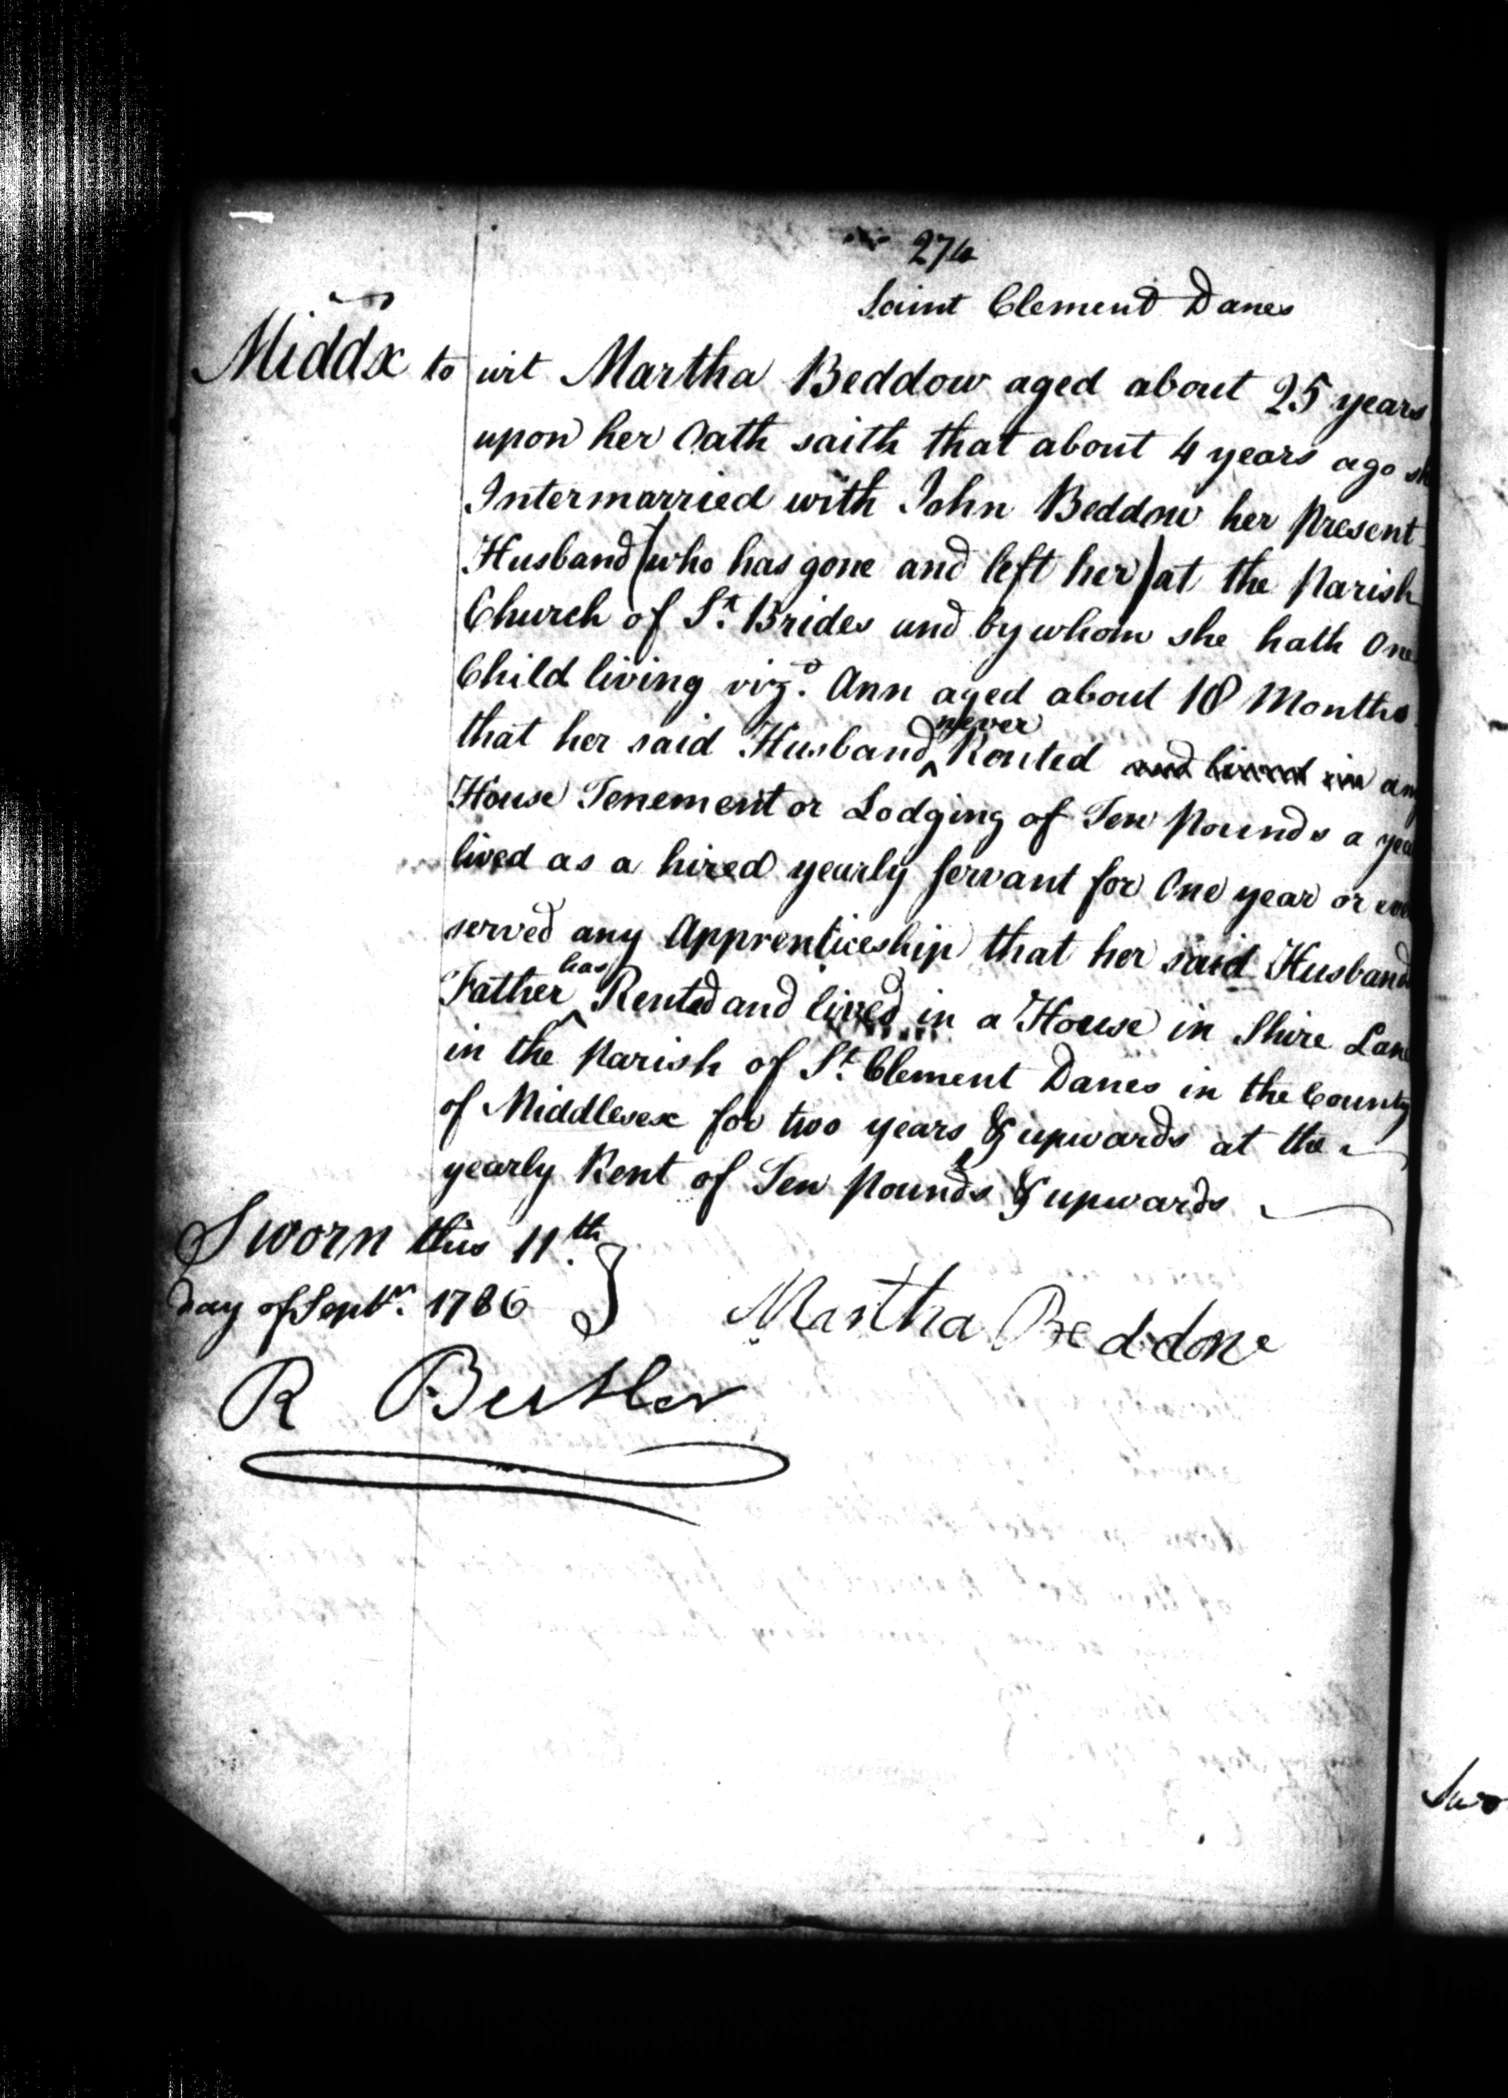 274
Saint Clement Danes
Middx to wit Martha Beddow aged about 25 years
upon her Oath saith that about 4 years ago sh
Intermarried with John Beddow her present
Husband (who has gone and left her) at the Parish
Church of St. Brides and by whom she hath One
Child living vizo. Ann aged about 18 Months
that her said Husband never Rented and lived in any
House Tenement or Lodging of Ten Pounds a yea
lived as a hired yearly servant for One year or eve
served any Apprenticeship that her said Husband
Father has Rented and lived in a House in Shire Lane
in the Parish of St. Clement Danes in the County
of Middlesex for two years & upwards at the
yearly Rent of Ten Pounds & upwards
Sworn this 11th.
Day of Septr. 1786
Martha Beddow
R Butler
Swo